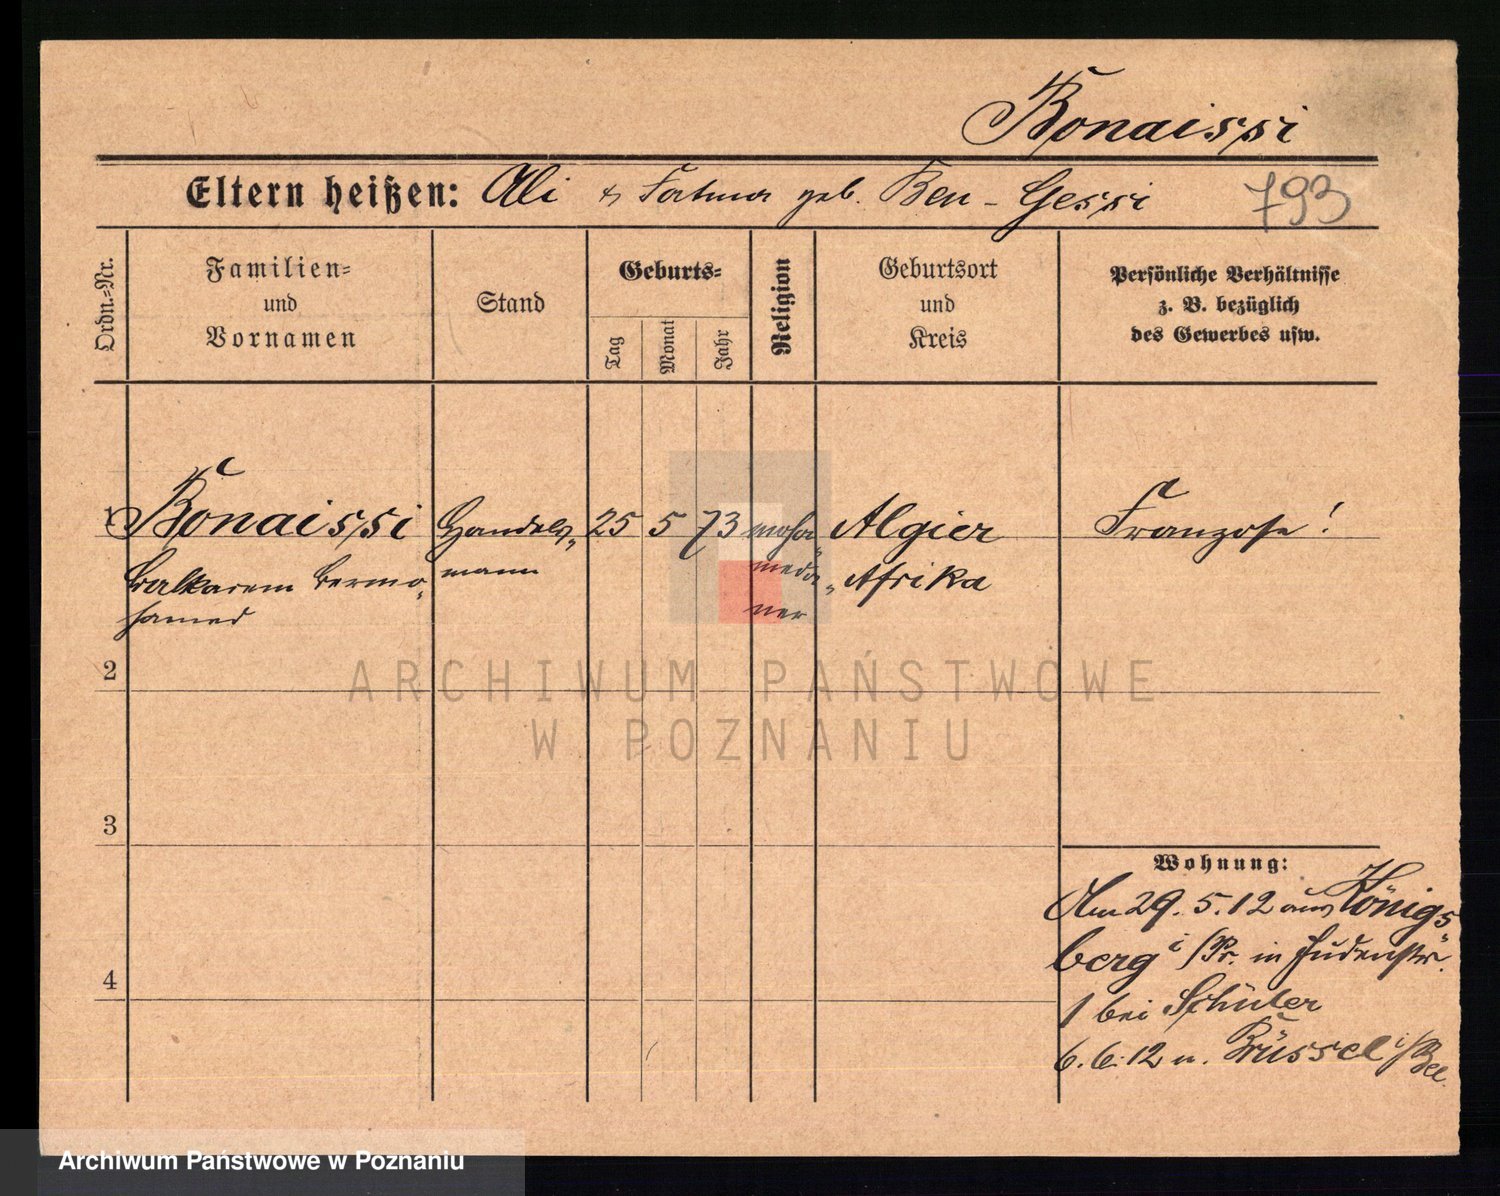 Bonaissi
Eltern heißen: Ali & Fatma geb. Ben-Gessi 793
Ordn.-Nr.
Familien-
und
Vornamen
Stand
Geburts-
Tag
Monat
Jahr
Religion
Geburtsort
und
Kreis
Persönliche Verhältnisse
z. B. bezüglich
des Gewerbes usw.
1 Bonaissi Handels„ 25 5 73 moha„ Algier Franzose!
Balkarem Bermo„ mann meda„ Afrika
hamed ner
2
3
4
ARCHIWUM PAŃSTWOWE
W POZNANIU
Wohnung:
Am 29.5.12 aus Königs„
berg i/Pr. in Judenstr.
1 bei Schüler
6.6.12 n. Brüssel i/Bel.
Archiwum Państwowe w Poznaniu